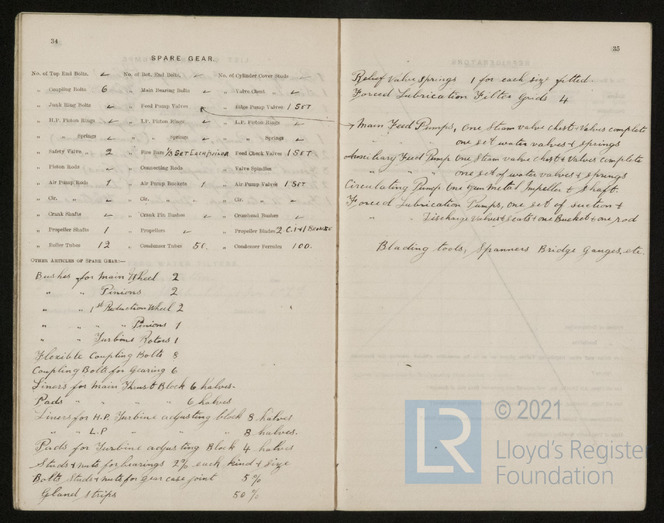 34
SPARE GEAR.
No. of Top End Bolts. ✓ No. of Bot. End Bolts, ✓ No. of Cylinder Cover Studs ✓
„ Coupling Bolts 6 „ Main Bearing Bolts ✓ „ Valve Chest „ ✓
„ Junk Ring Bolts ✓ „ Feed Pump Valves „ Bilge Pump Valves 1 SET
„ H.P. Piston Rings ✓ „ I.P. Piston Rings ✓ „ L.P. Piston Rings ✓
„ „ Springs ✓ „ „ Springs ✓ „ „ Springs ✓
„ Safety Valve „ 2 „ Fire Bars ½ SET EACH BOILER „ Feed Check Valves 1 SET
„ Piston Rods ✓ „ Connecting Rods „ Valve Spindles
„ Air Pump Rods 1 „ Air Pump Buckets 1 „ Air Pump Valves 1 SET
„ Cir. „ ✓ „ Cir. „ ✓ „ Cir. „ ✓
„ Crank Shafts ✓ „ Crank Pin Bushes ✓ „ Crosshead Bushes ✓
„ Propeller Shafts 1 „ Propellers ✓ „ Propeller Blades 2 C.I. + 1 BRONZE
„ Boiler Tubes 12 „ Condenser Tubes 50. „ Condenser Ferrules 100.
OTHER ARTICLES OF SPARE GEAR:—
Bushes for Main Wheel 2
„ „ Pinions 2
„ „ 1st Reduction Wheel 2
„ „ „ „ Pinions 1
„ „ Turbine Rotors 1
Flexible Coupling Bolts 8
Coupling Bolts for Gearing 6
Liners for Main Thrust Block 6 halves.
Pads „ „ „ 6 halves
Liners for H.P. Turbine adjusting block 8 halves
„ „ L.P „ „ „ 8 halves.
Pads for Turbine adjusting Block 4 halves
Studs & nuts for bearings 2% each kind & size
Bolts, Studs & nuts for gear case joint 5%
Gland strips 50%
35
Relief valve springs 1 for each size fitted.
Forced Lubrication Filter Grids 4
Main Feed Pumps, One Steam valve chest & Valves complete
one set water valves & springs
Auxiliary Feed Pump One Steam valve chest & Valves complete
„ „ „ one set of water valves & springs
Circulating Pump One Gun Metal Impeller & Shaft
Forced Lubrication Pumps, one set of suction &
„ „ Discharge valves & seats & one Bucket & one rod
Blading tools, Spanners Bridge Gauges, etc
LR
© 2021
Lloyd's Register
Foundation